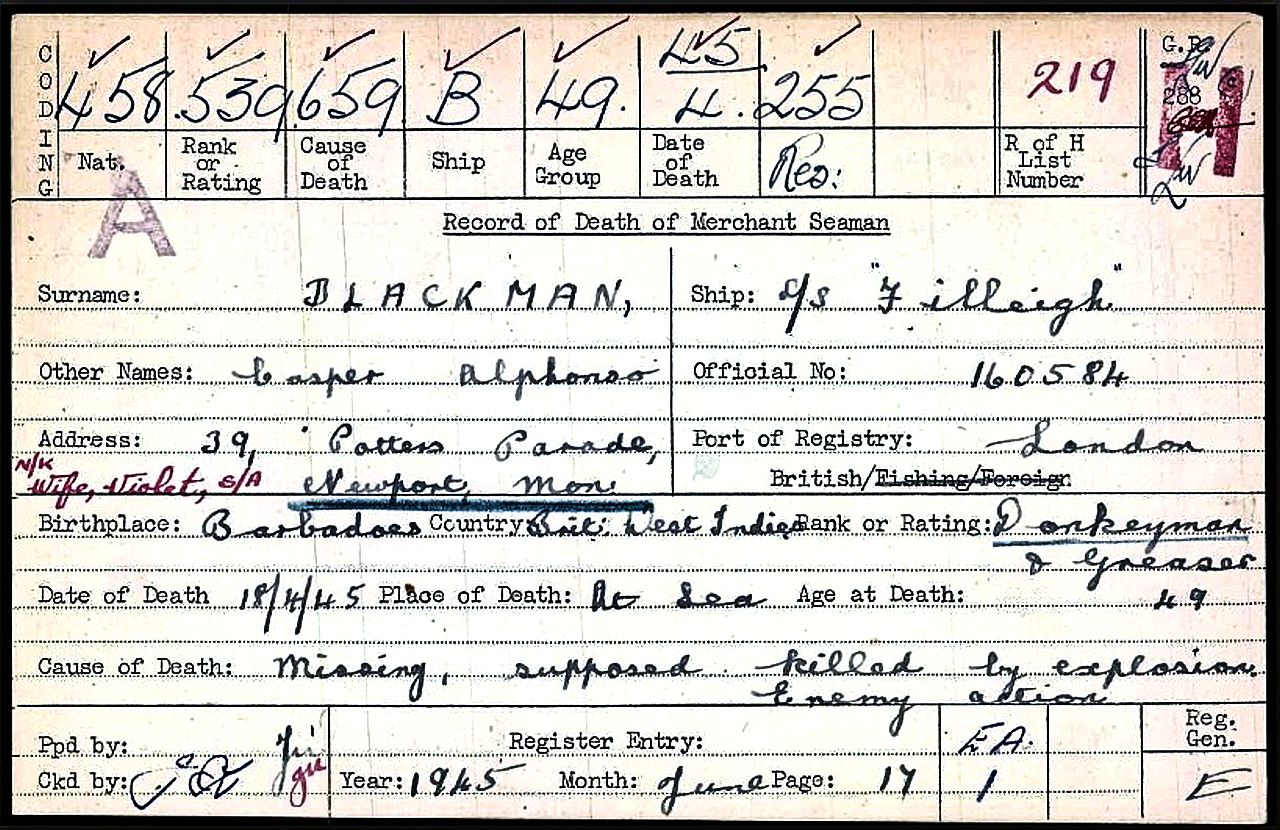 CODING
458 539 659 B 49. 45 4. 255 219 G.P. 288
Nat. Rank or Rating Cause of Death Ship Age Group Date of Death Res: R of H List Number
H
A
Record of Death of Merchant Seaman
Surname: BLACKMAN, Ship: s/s "Filleigh"
Other Names: Casper Alphonso Official No: 160584
Address: 39, Potters Parade, Port of Registry: London
N/K Wife, Violet, s/A Newport, Mon. British/Fishing/Foreign
Birthplace: Barbadoes Country: Brit: West Indies Rank or Rating: Donkeyman
& Greaser
Date of Death 18/4/45 Place of Death: At Sea Age at Death: 49
Cause of Death: Missing, supposed killed by explosion.
Enemy action
Ppd by: Register Entry: EA. Reg. Gen.
Ckd by: Year: 1945 Month: June Page: 17 1 E